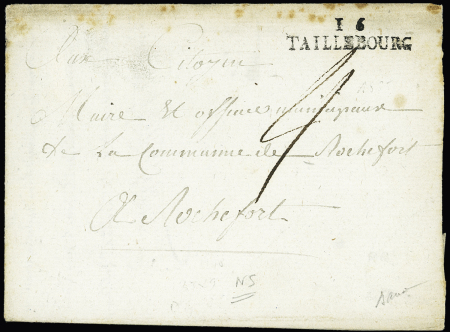 16
TAILLEBOURG
Aux Citoyen
Maire et officiers municipaux
de La Commune de Rochefort
A Rochefort
NS